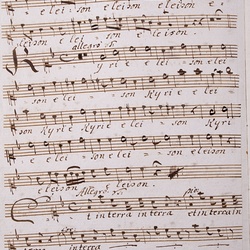 e lei - son e leison eleison
eleison e lei - son e - leison.
allegro F
Kyrie e lei - son e lei -
son elei - son Kyrie elei -
son Kyrie Kyrie e - lei - son Kyrie
e e lei - son elei - son eleison
eleison eleison.
Allegro F pia:
Et in terra in terra et in terra in
terra